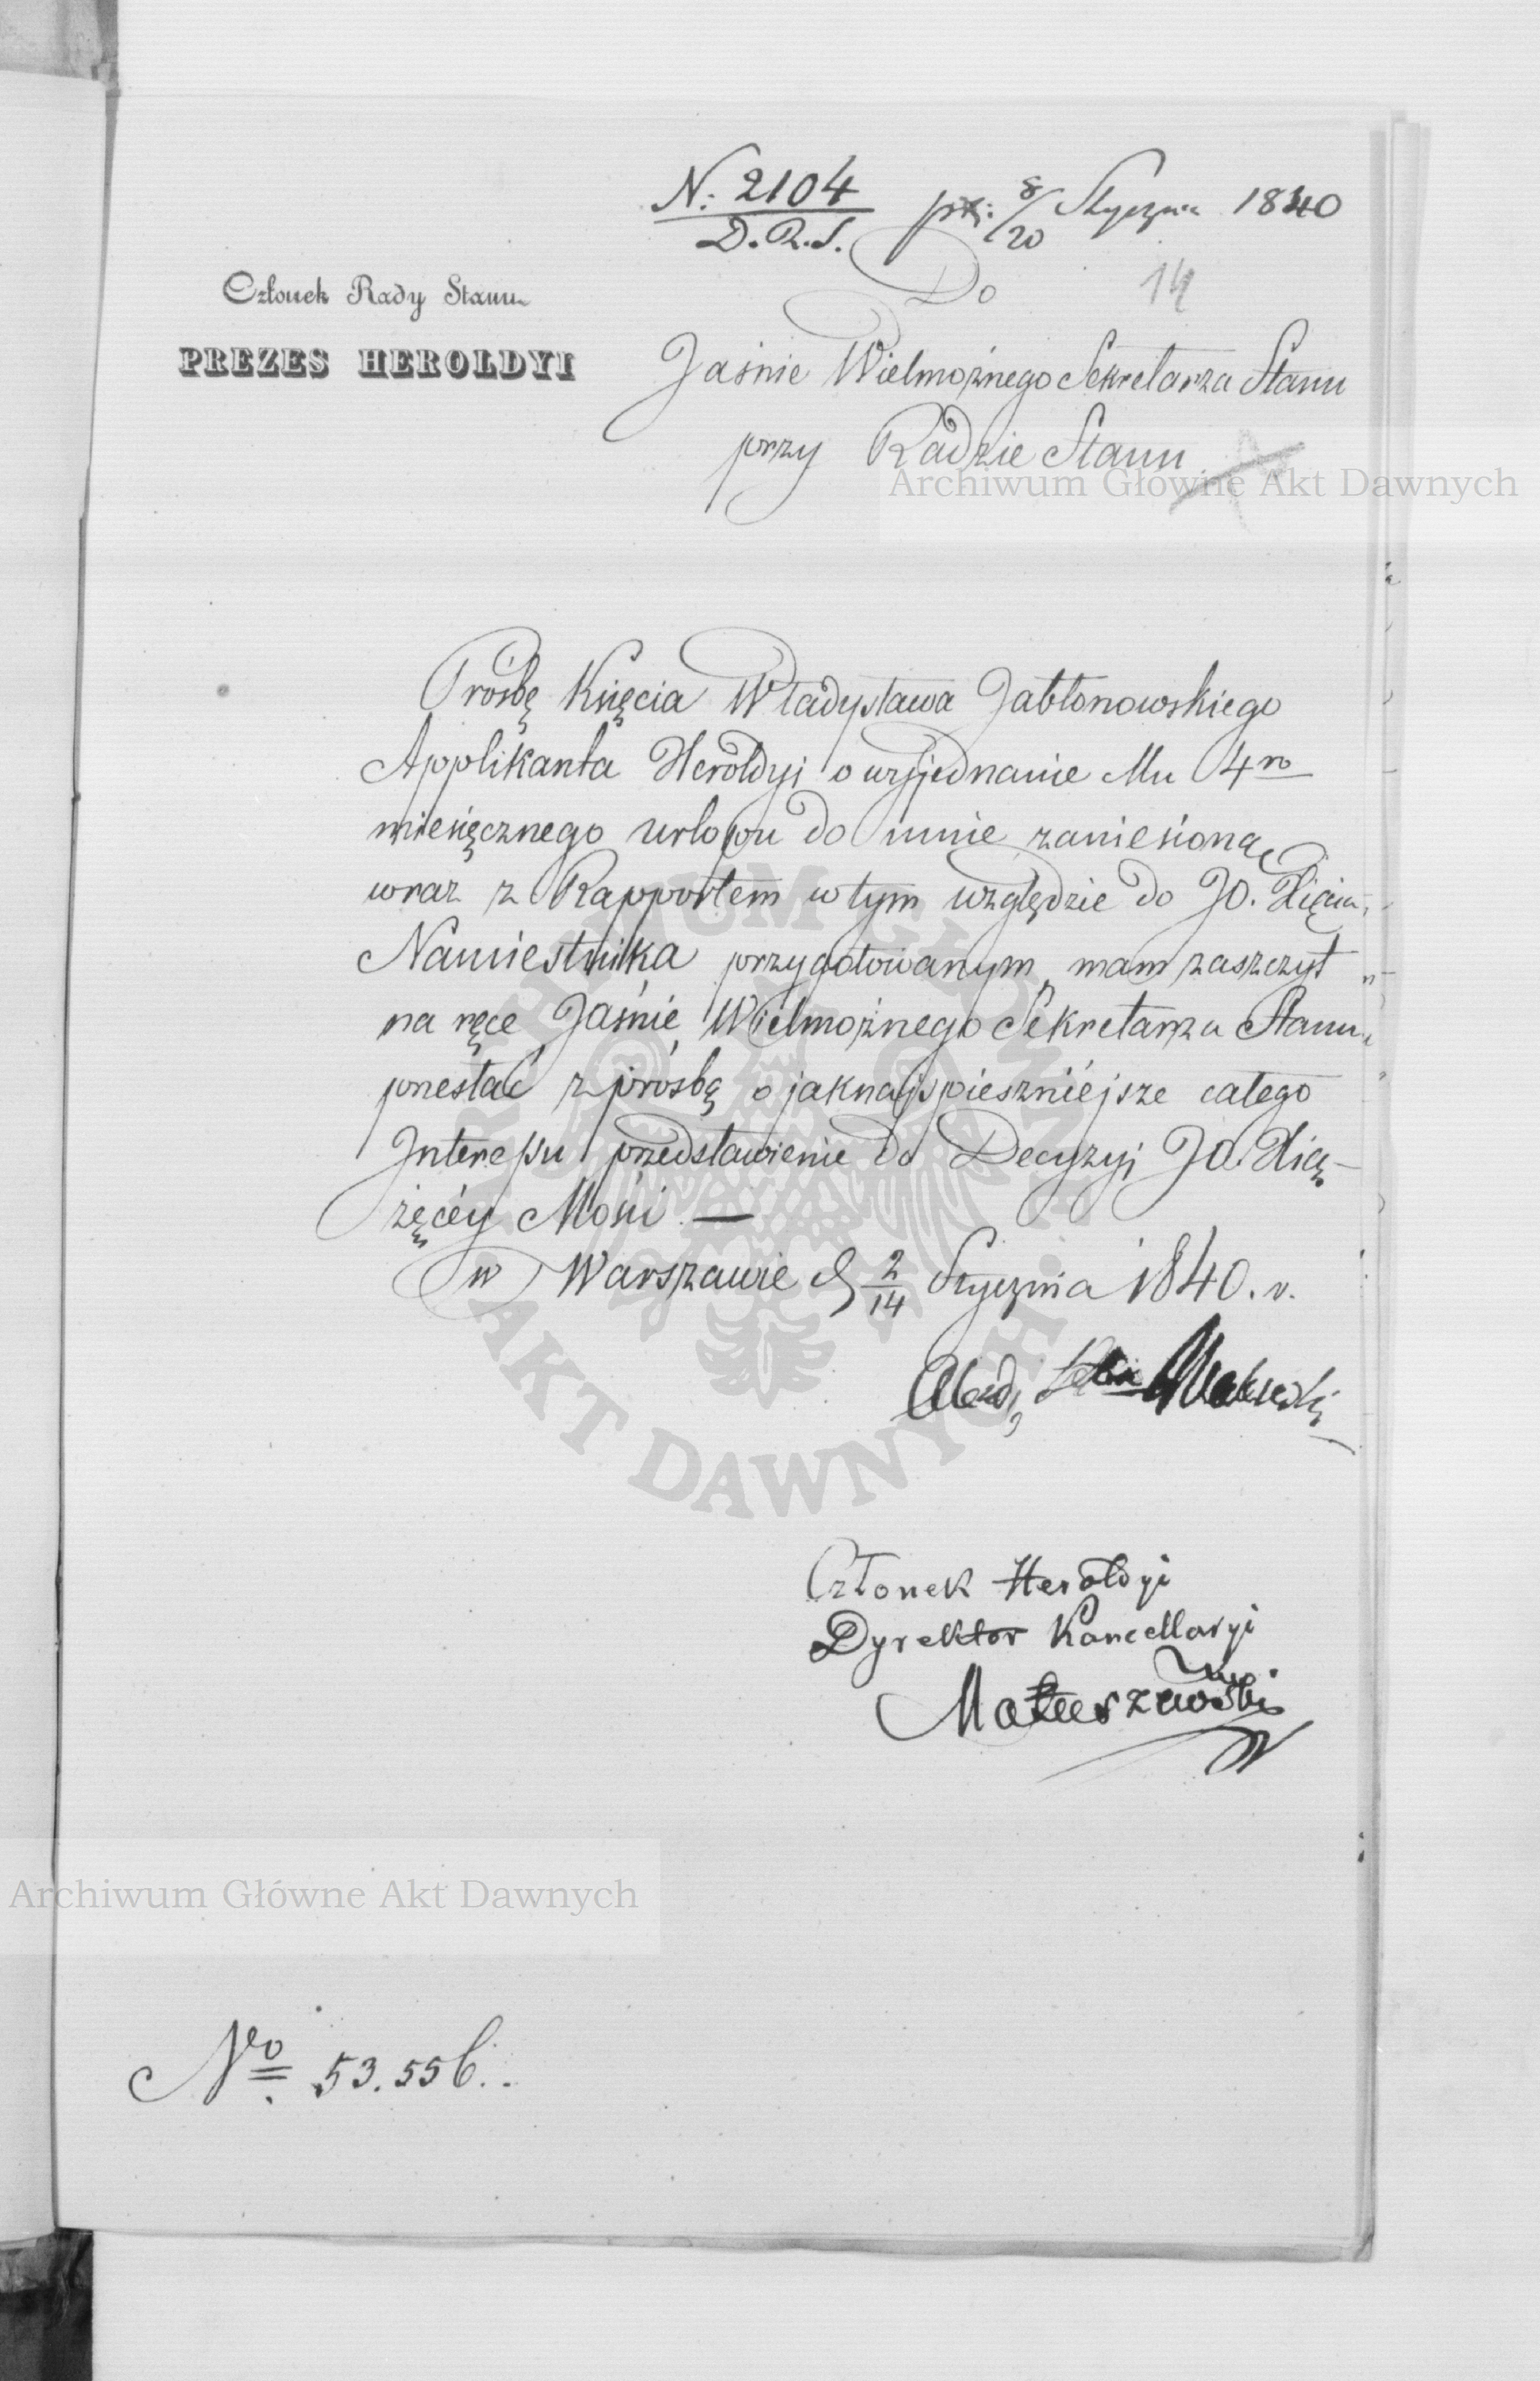 N: 2104
D. R. S.
8/20 Stycznia 1840
14
Członek Rady Stanu
PREZES HEROLDYI
Do
Jaśnie Wielmożnego Sekretarza Stanu
przy Radzie Stanu
Archiwum Główne Akt Dawnych
Prośbę Księcia Władysława Jabłonowskiego
Applikanta Heroldyi o wyjednanie Mu 4ro
miesięcznego urlopu do mnie zaniesioną
wraz z Rapportem w tym względzie do JO. Xięcia
Namiestnika przygotowanym, mam zaszczyt
na ręce Jaśnie Wielmożnego Sekretarza Stanu
przesłać z prośbą o jaknajspieszniéjsze całego
Interessu przedstawienie do Decyzyi JO. Xią-
żęcéy Mości. —
w Warszawie d 2/14 Stycznia 1840. r.
Członek Heroldyi
Dyrektor Kancellaryi
Matuszewski
ARCHIWUM GŁÓWNE AKT DAWNYCH
Archiwum Główne Akt Dawnych
No 53.556.